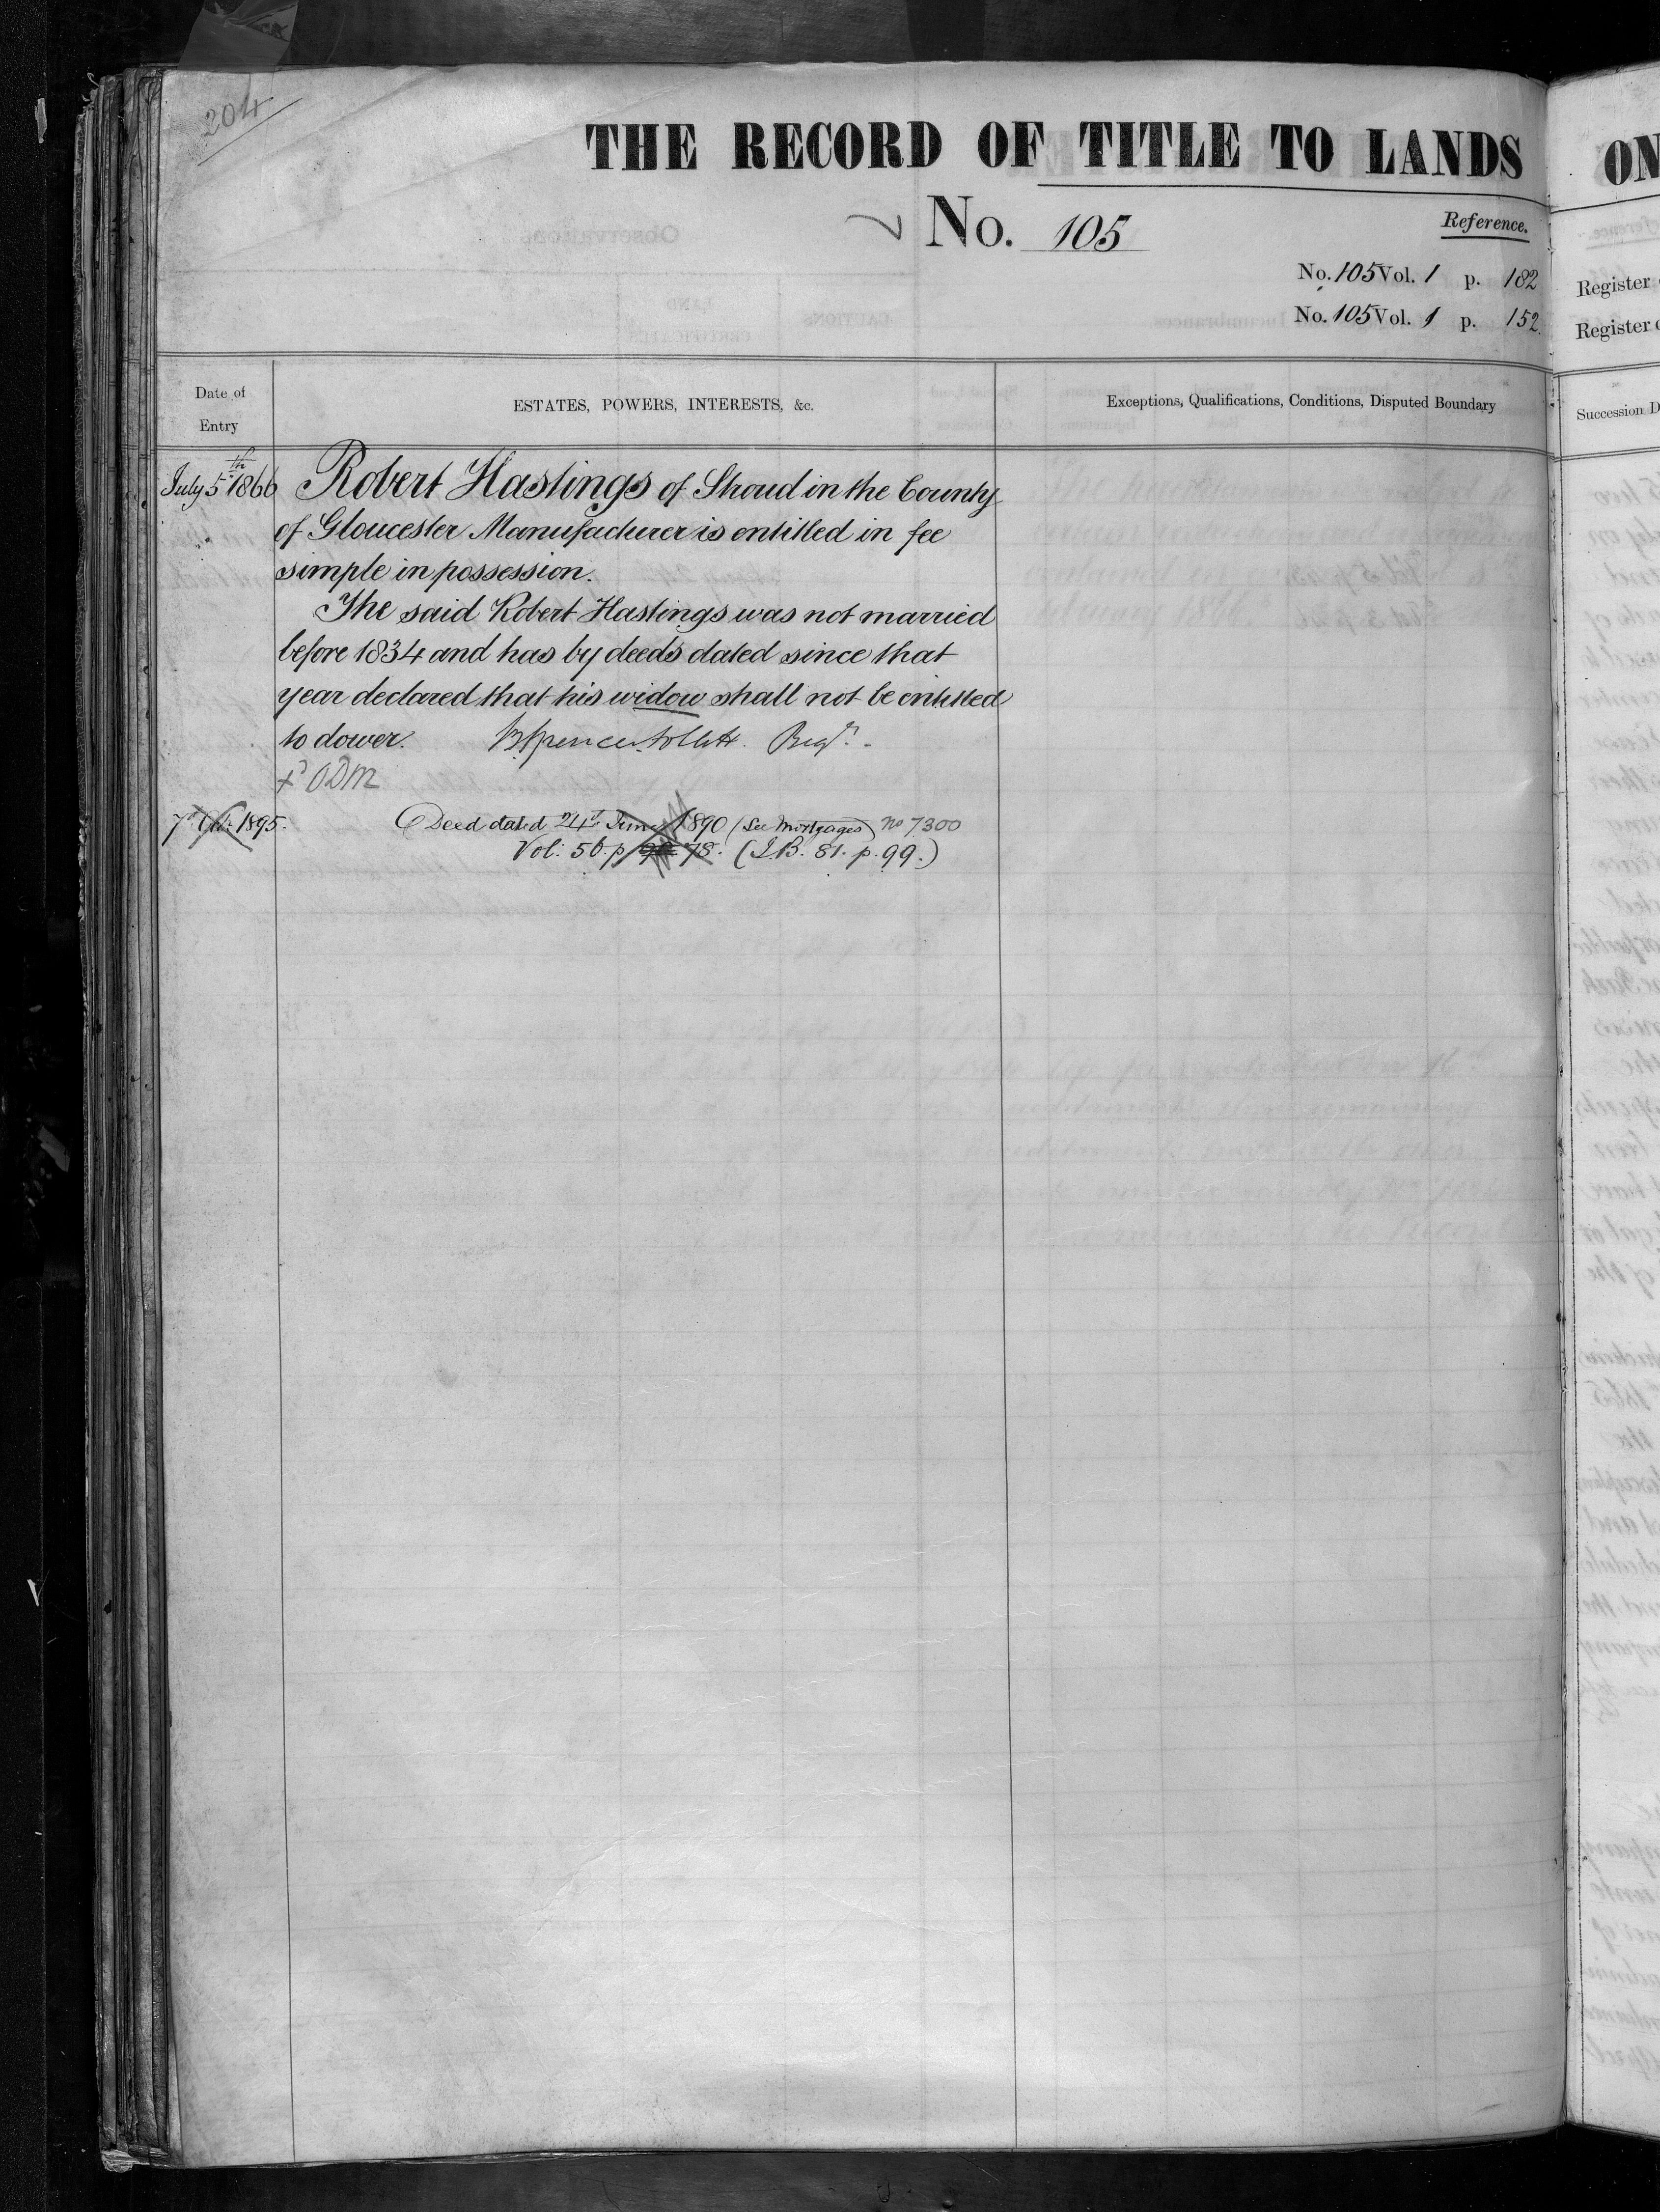 204
THE RECORD OF TITLE TO LANDS
No. 105
Reference.
No. 105 Vol. 1 p. 182
No. 105 Vol. 1 p. 152.
ON
Register
Register
Date of
Entry
ESTATES, POWERS, INTERESTS, &c.
Exceptions, Qualifications, Conditions, Disputed Boundary
Succession D
July 5th 1866 Robert Hastings of Stroud in the County
of Gloucester Manufacturer is entitled in fee
simple in possession.
The said Robert Hastings was not married
before 1834 and has by deeds dated since that
year declared that his widow shall not be entitled
to dower. Regr.
ODM
7th Oct 1895. Deed dated 24th June 1890 (See Mortgages) No 7300
Vol: 56. p 78. (I.B. 81. p. 99.)